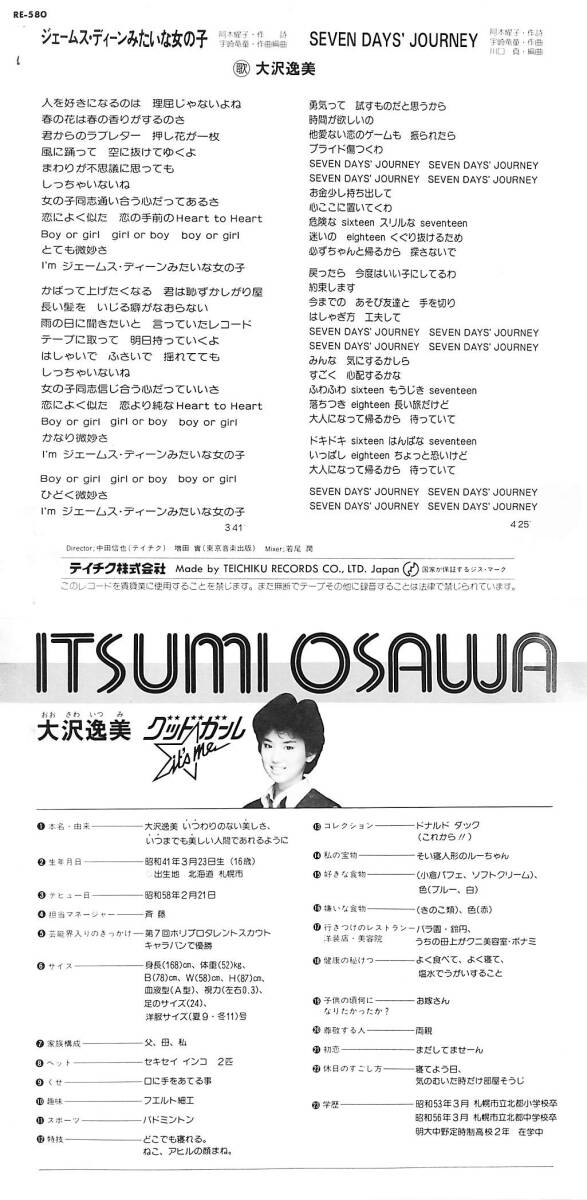 RE-580
ジェームス・ディーンみたいな女の子
阿木耀子・作 詩
宇崎竜童・作曲編曲
SEVEN DAYS' JOURNEY
阿木耀子・作詩
宇崎竜童・作曲
川口 真・編曲
歌 大沢逸美
人を好きになるのは 理屈じゃないよね
春の花は春の香りがするのさ
君からのラブレター 押し花が一枚
風に踊って 空に抜けてゆくよ
まわりが不思議に思っても
しっちゃいないね
女の子同志通い合う心だってあるさ
恋によく似た 恋の手前のHeart to Heart
Boy or girl girl or boy boy or girl
とても微妙さ
I'm ジェームス・ディーンみたいな女の子
かばって上げたくなる 君は恥ずかしがり屋
長い髪を いじる癖がなおらない
雨の日に聞きたいと 言っていたレコード
テープに取って 明日持っていくよ
はしゃいで ふさいで 揺れてても
しっちゃいないね
女の子同志信じ合う心だっていいさ
恋によく似た 恋より純なHeart to Heart
Boy or girl girl or boy boy or girl
かなり微妙さ
I'm ジェームス・ディーンみたいな女の子
Boy or girl girl or boy boy or girl
ひどく微妙さ
I'm ジェームス・ディーンみたいな女の子
3'41"
勇気って 試すものだと思うから
時間が欲しいの
他愛ない恋のゲームも 振られたら
プライド傷つくわ
SEVEN DAYS' JOURNEY SEVEN DAYS' JOURNEY
SEVEN DAYS' JOURNEY SEVEN DAYS' JOURNEY
お金少し持ち出して
心ここに置いてくわ
危険な sixteen スリルな seventeen
迷いの eighteen くぐり抜けるため
必ずちゃんと帰るから 探さないで
戻ったら 今度はいい子にしてるわ
約束します
今までの あそび友達と 手を切り
はしゃぎ方 工夫して
SEVEN DAYS' JOURNEY SEVEN DAYS' JOURNEY
SEVEN DAYS' JOURNEY SEVEN DAYS' JOURNEY
みんな 気にするかしら
すごく 心配するかな
ふわふわ sixteen もうじき seventeen
落ちつき eighteen 長い旅だけど
大人になって帰るから 待っていて
ドキドキ sixteen はんぱな seventeen
いっぱし eighteen ちょっと恐いけど
大人になって帰るから 待っていて
SEVEN DAYS' JOURNEY SEVEN DAYS' JOURNEY
SEVEN DAYS' JOURNEY SEVEN DAYS' JOURNEY
4'25"
Director;中田信也(テイチク) 増田 實(東京音楽出版) Mixer;若尾 潤
テイチク株式会社 Made by TEICHIKU RECORDS CO., LTD. Japan 国家が保証するジス・マーク
このレコードを賃貸業に使用することを禁じます。また無断でテープその他に録音することは法律で禁じられています。
ITSUMI OSAWA
おお さわ いつ み
大沢逸美 グッドガール
it's me
❶本名・由来 大沢逸美 いつわりのない美しさ、
いつまでも美しい人間であれるように
❷生年月日 昭和41年3月23日生(16歳)
出生地 北海道 札幌市
❸デビュー日 昭和58年2月21日
❹担当マネージャー 斉 藤
❺芸能界入りのきっかけ 第7回ホリプロタレントスカウト
キャラバンで優勝
❻サイズ 身長(168)cm、体重(52)kg、
B(78)cm、W(58)cm、H(87)cm、
血液型(A型)、視力(左右0.3)、
足のサイズ(24)、
洋服サイズ(夏9・冬11)号
❼家族構成 父、母、私
❽ペット セキセイ インコ 2匹
❾くせ 口に手をあてる事
❿趣味 フエルト細工
⓫スポーツ バドミントン
⓬特技 どこでも寝れる。
ねこ、アヒルの顔まね。
⓭コレクション ドナルド ダック
(これから!!)
⓮私の宝物 そい寝人形のルーちゃん
⓯好きな食物 (小倉パフェ、ソフトクリーム)、
色(ブルー、白)
⓰嫌いな食物 (きのこ類)、色(赤)
⓱行きつけのレストラン 洋装店・美容院 バラ園・鈴円、
うちの母上がクニ美容室・ボナミ
⓲健康の秘けつ よく食べて、よく寝て、
塩水でうがいすること
⓳子供の頃何になりたかったか? お嫁さん
⓴尊敬する人 両親
㉑初恋 まだしてませーん
㉒休日のすごし方 寝てよう日、
気のむいた時だけ部屋そうじ
㉓学歴 昭和53年3月 札幌市立北都小学校卒
昭和56年3月 札幌市立北都中学校卒
明大中野定時制高校2年 在学中